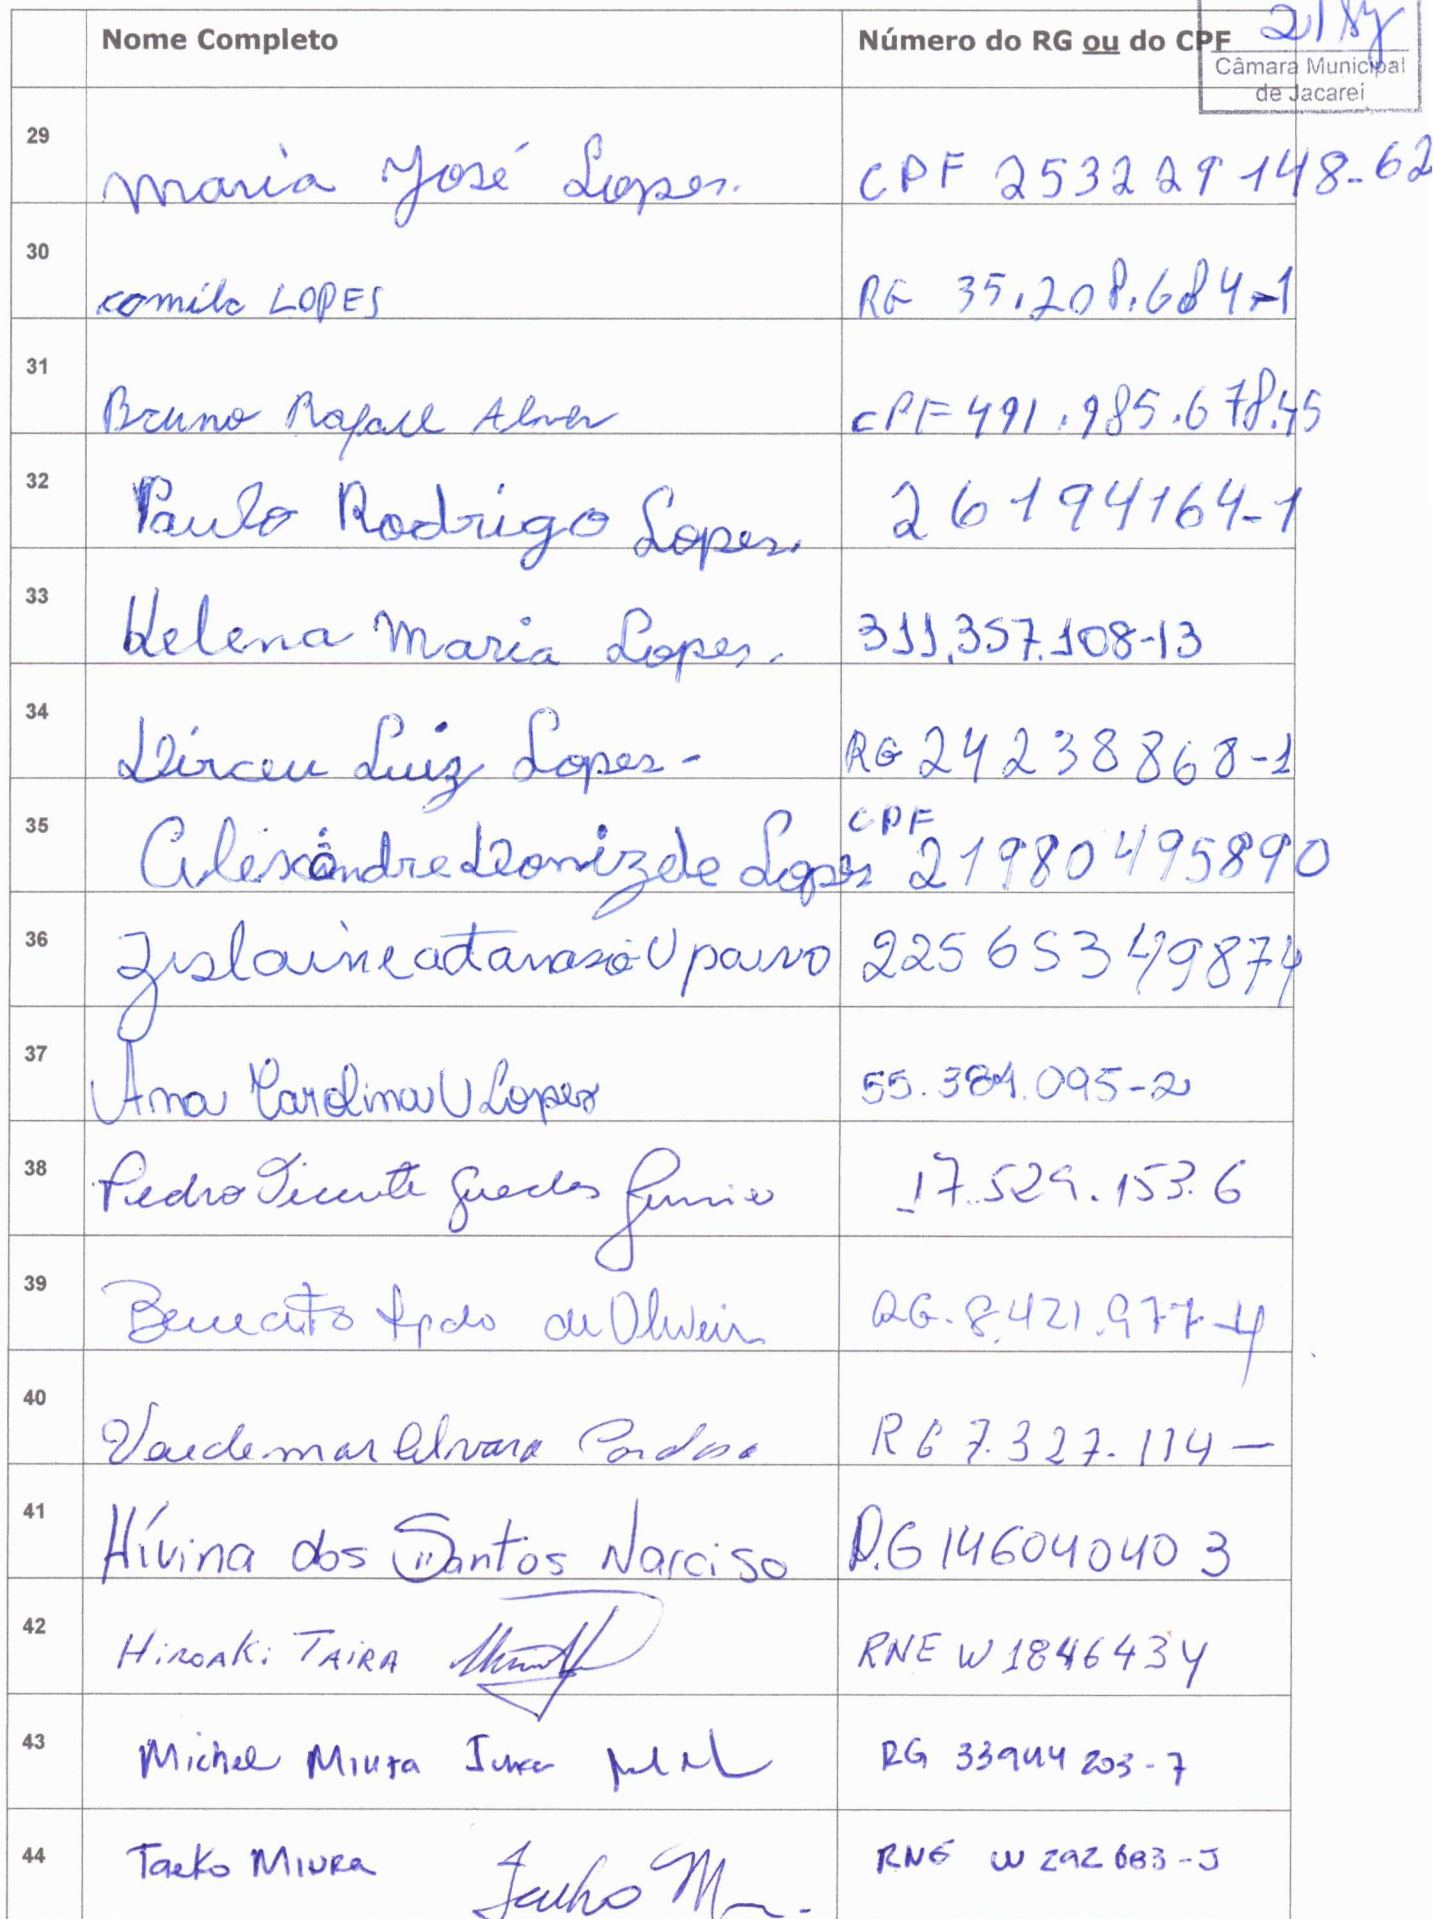 Nome Completo Número do RG ou do CPF
Câmara Municipal
de Jacareí
29 Maria José Lopes. CPF 253229148-62
30 Kamila LOPES RG 35.208.684-1
31 Bruno Rafael Alves CPF 491.985.678.45
32 Paulo Rodrigo Lopes. 26194164-1
33 Helena Maria Lopes. 311.357.108-13
34 Dirceu Luiz Lopes - RG 24238868-1
35 Alexandre Donizete Lopes CPF 21980495890
36 22565349874
37 Ana Carolina U Lopes 55.384.095-2
38 Pedro Vicente Guedes Junior 17.529.153.6
39 Benedito Apdo de Oliveira RG. 8.421.977-4
40 Valdemar Alvara Cardoso RG 7.327.114 -
41 Hívina dos Santos Narciso RG 146040403
42 Hiroaki TAIRA RNE W184643Y
43 Michel Miura RG 33944203-7
44 Taeko Miura RNE W292683-J